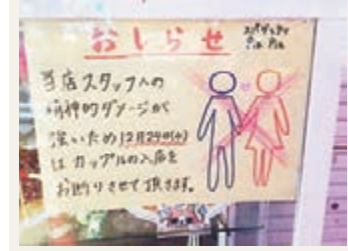 おしらせ
当店スタッフへの
精神的ダメージが
強いため12月24日(水)
はカップルの入店を
お断りさせて頂きます。